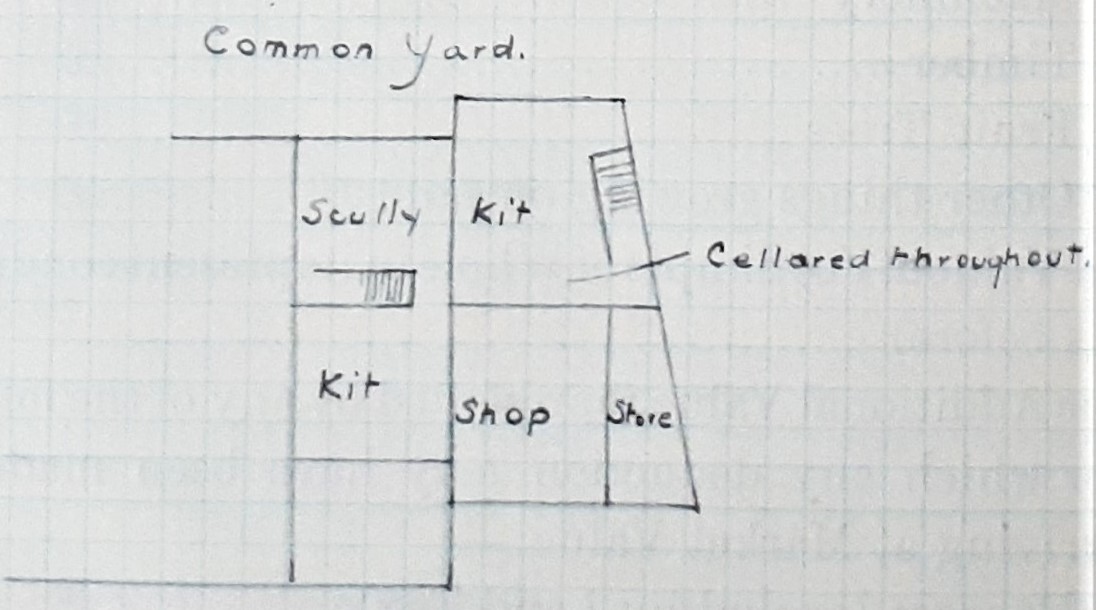 Common Yard.
Scully
Kit
Cellared throughout.
Kit
Shop
Store